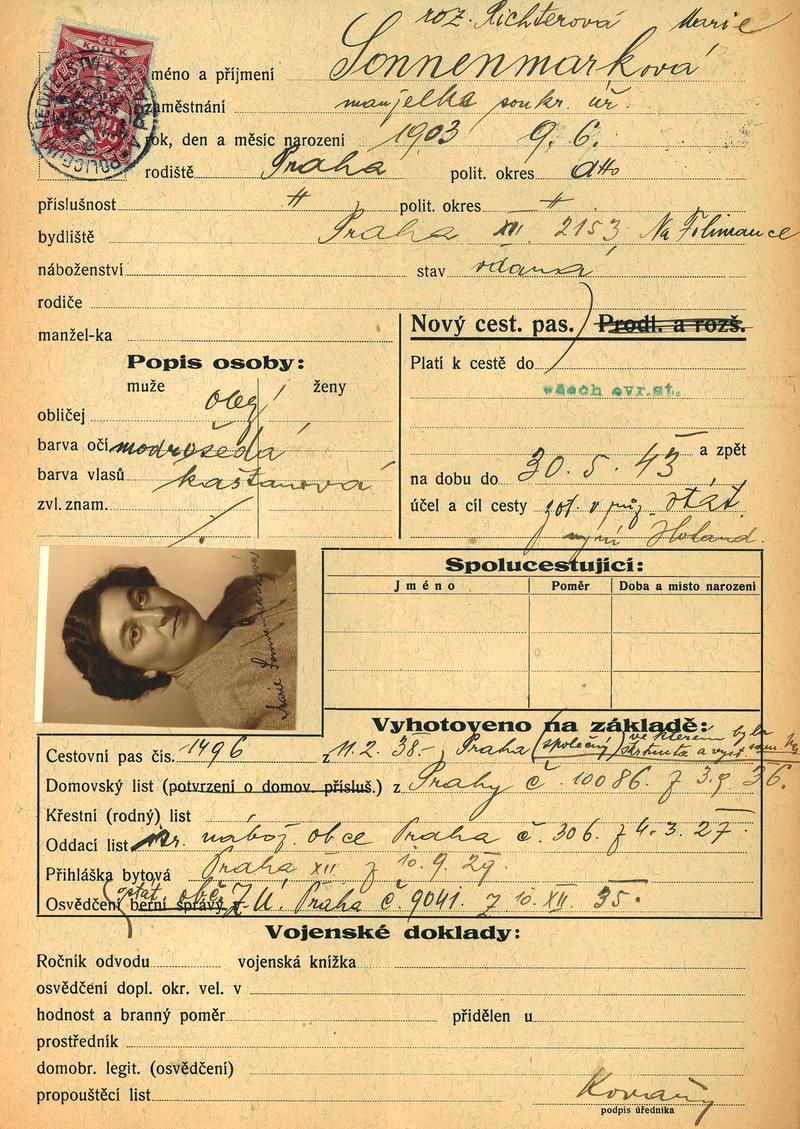 roz. Richterová Marie
ČR
KOLEK
jméno a příjmení Sonnenmarková
zaměstnání manželka soukr. úř.
rok, den a měsíc narození 1903 9. 6.
rodiště Praha polit. okres dtto
příslušnost " polit. okres "
bydliště Praha XII. 2153, Na Folimance
náboženství stav vdaná
rodiče
manžel-ka
Nový cest. pas. Prodl. a rozš.
Popis osoby:
muže ženy
Platí k cestě do
všech evr. st.
obličej obl.
barva očí modrošedá
barva vlasů kaštanová
zvl. znam.
a zpět
na dobu do 30. 5. 43
účel a cíl cesty stát.
nyní Holand.
Marie Sonnenmarková
Spolucestující:
Jméno Poměr Doba a misto narození
Vyhotoveno na základě:
Cestovní pas čís. 1496 z 11. 2. 38.- Praha (společný) ve kterém byla
Domovský list (potvrzení o domov. přísluš.) z Prahy č. 10086. z 3. 9. 36.
Křestní (rodný) list
Oddací list izr. nábož. obce Praha č. 306. z 4. 3. 27.
Přihláška bytová Praha XII z 10. 9. 29.
Osvědčení berní správy stát. obč. Z. Ú. Praha č. 9041. z 10. XII. 35.
Vojenské doklady:
Ročník odvodu vojenská knížka
osvědčení dopl. okr. vel. v
hodnost a branný poměr přidělen u
prostředník
domobr. legit. (osvědčení)
propouštěcí list
podpis úředníka